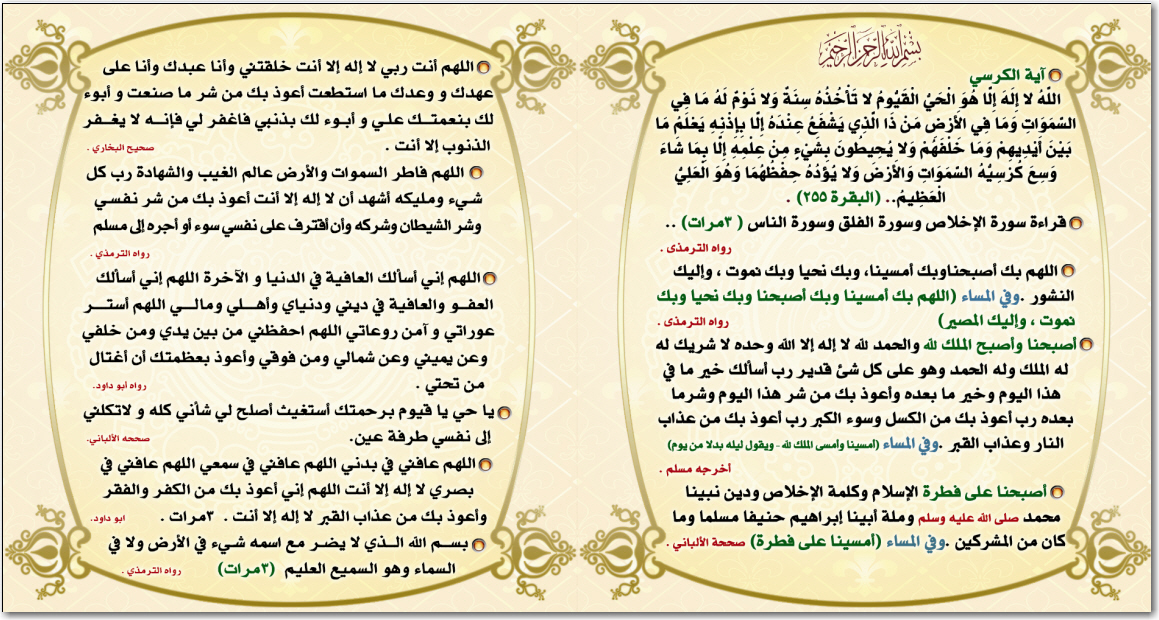 بسم الله الرحمن الرحيم
آية الكرسي
اللّهُ لا إِلَهَ إِلَّا هُوَ الْحَيُّ الْقَيُّومُ لا تَأْخُذُهُ سِنَةٌ وَلا نَوْمٌ لَهُ مَا فِي
السَّمَوَاتِ وَمَا فِي الأَرْضِ مَنْ ذَا الَّذِي يَشْفَعُ عِنْدَهُ إِلَّا بِإِذْنِهِ يَعْلَمُ مَا
بَيْنَ أَيْدِيهِمْ وَمَا خَلْفَهُمْ وَلا يُحِيطُونَ بِشَيْءٍ مِنْ عِلْمِهِ إِلَّا بِمَا شَاءَ
وَسِعَ كُرْسِيُّهُ السَّمَوَاتِ وَالأَرْضَ وَلا يَؤُدُهُ حِفْظُهُمَا وَهُوَ الْعَلِيُّ
الْعَظِيمُ.. (البقرة ٢٥٥) .
قراءة سورة الإخلاص وسورة الفلق وسورة الناس ( ٣مرات) ..
رواه الترمذى .
اللهم بك أصبحناوبك أمسينا، وبك نحيا وبك نموت ، وإليك
النشور .وفي المساء (اللهم بك أمسينا وبك أصبحنا وبك نحيا وبك
نموت ، وإليك المصير) رواه الترمذى .
أصبحنا وأصبح الملك لله والحمد لله لا إله إلا الله وحده لا شريك له
له الملك وله الحمد وهو على كل شئ قدير رب أسألك خير ما في
هذا اليوم وخير ما بعده وأعوذ بك من شر هذا اليوم وشرما
بعده رب أعوذ بك من الكسل وسوء الكبر رب أعوذ بك من عذاب
النار وعذاب القبر .وفي المساء (أمسينا وأمسى الملك لله - ويقول ليله بدلا من يوم)
أخرجه مسلم .
أصبحنا على فطرة الإسلام وكلمة الإخلاص ودين نبينا
محمد صلى الله عليه وسلم وملة أبينا إبراهيم حنيفا مسلما وما
كان من المشركين .وفي المساء (أمسينا على فطرة) صححة الألباني .
اللهم أنت ربي لا إله إلا أنت خلقتني وأنا عبدك وأنا على
عهدك و وعدك ما استطعت أعوذ بك من شر ما صنعت و أبوء
لك بنعمتــك علـي و أبـوء لك بذنبي فاغفر لي فإنــه لا يغــفر
الذنوب إلا أنت . صحيح البخاري .
اللهم فاطر السموات والأرض عالم الغيب والشهادة رب كل
شـيء ومليكه أشهد أن لا إله إلا أنت أعوذ بك من شر نفسـي
وشر الشيطان وشركه وأن أقترف على نفسي سوء أو أجره إلى مسلم
رواه الترمذي .
اللهم إني أسألك العافية في الدنيا و الآخرة اللهم إني أسألك
العفــو والعافية في ديني ودنياي وأهــلي ومالــي اللهم أستــر
عوراتي و آمن روعاتي اللهم احفظني من بين يدي ومن خلفي
وعن يميني وعن شمالي ومن فوقي وأعوذ بعظمتك أن أغتال
من تحتي . رواه ابو داود.
يا حي يا قيوم برحمتك أستغيث أصلح لي شأني كله و لاتكلني
إلى نفسي طرفة عين. صححه الألباني.
اللهم عافني في بدني اللهم عافني في سمعي اللهم عافني في
بصري لا إله إلا أنت اللهم إني أعوذ بك من الكفر والفقر
وأعوذ بك من عذاب القبر لا إله إلا أنت . ٣مرات . ابو داود.
بســم الله الــذي لا يضــر مع اسمه شـيء في الأرض ولا في
السماء وهو السميع العليم (٣مرات) رواه الترمذي .